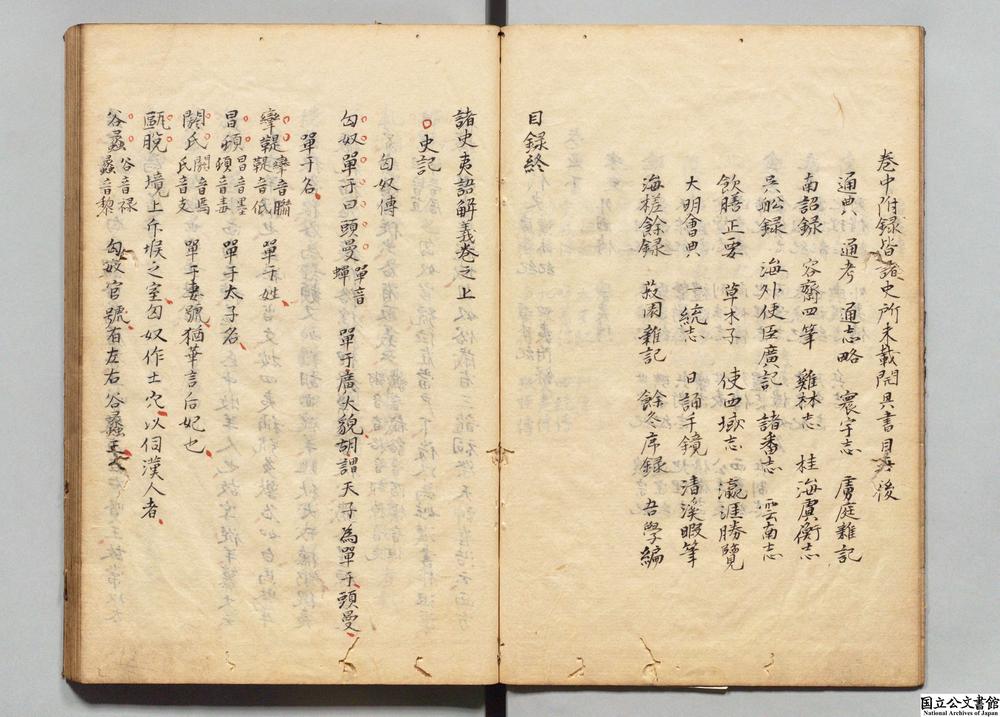 卷中附録皆諸史所未載開具書目于後
通典 通考 通志略 寰宇志 虜庭雜記
南詔録 容齋四筆 雞林志 桂海虞衡志
吳船録 海外使臣廣記 諸番志 雲南志
飲膳正要 草木子 使西域志 瀛涯勝覽
大明會典 一統志 日誦千鏡 清溪暇筆
海槎餘録 菽園雜記 餘冬序録 吾學編
目録終
諸史夷語解義卷之上
史記
匈奴傳
匈奴單于曰頭曼 單音蟬 單于廣大貌胡謂天子為單于頭曼
單于名
攣鞮 攣音臠鞮音低 單于姓
冒頓 冒音墨頓音毒 單于太子名
閼氏 閼音焉氏音支 單于妻號猶華言后妃也
甌脫 境上斥堠之室匈奴作土穴以伺漢人者
谷蠡 谷音祿蠡音黎 匈奴官號有左右谷蠡王
国立公文書館
National Archives of Japan